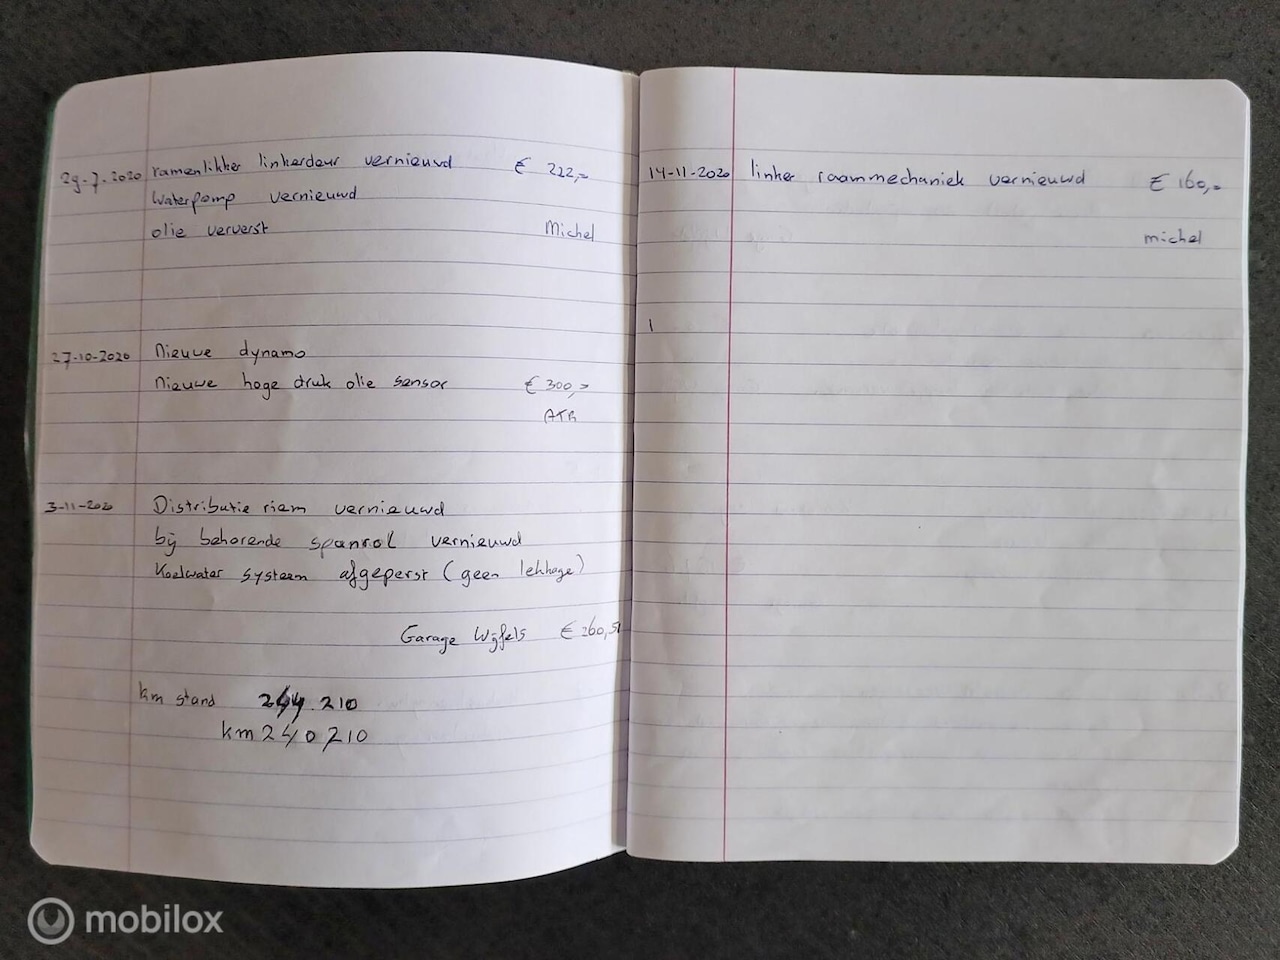 29-7-2020 ramenlikker linkerdeur vernieuwd € 222,=
Waterpomp vernieuwd
olie ververst Michel
27-10-2020 Nieuwe dynamo
nieuwe hoge druk olie sensor € 300,=
ATR
3-11-2020 Distributie riem vernieuwd
bij behorende spanrol vernieuwd
Koelwater systeem afgeperst (geen lekkage)
Garage Wijfels € 260,51
km stand 244.210
km 240210
14-11-2020 linker raammechaniek vernieuwd € 160,=
michel
mobilox